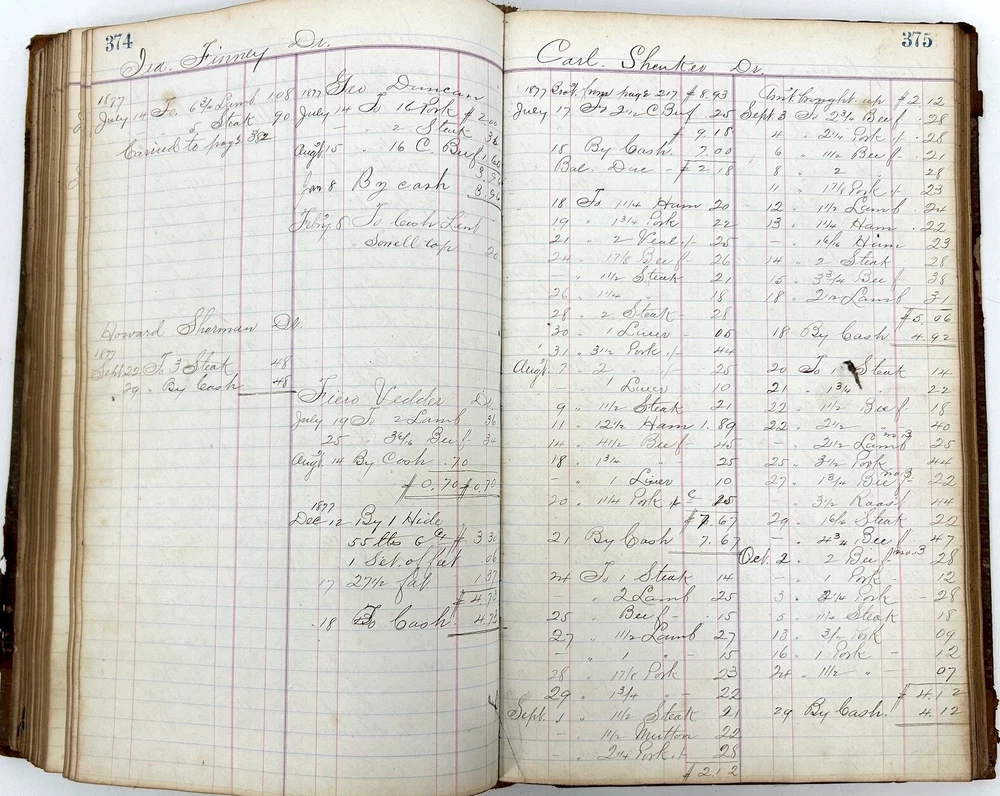 374
Ira. Finney Dr.
1877
July 14 To 6 3/4 Lamb 108
" 5 Steak 90
Carried to page 382
Howard Sherman Dr.
1877
Sept 22 To 3 Steak 48
29 " By Cash 48
Geo Duncan
1877
July 14 To 16 Pork $ 2.00
— " 2 Steak 36
Augt 15 " 16 C. Beef 1.60
3.96
Jan 8 By cash 3.96
Febry 8 To Cash Lent
20
Fiero Vedder Dr.
July 19 To 2 Lamb 36
25 " Beef 34
Augt 14 By Cash .70
$ 0.70 $ 0.70
1877
Dec 12 By 1 Hide
55 lbs 6 cts $ 3.30
1 Set. of feet .06
17 27 1/2 fat 1.37
$ 4.73
18 To Cash 4.73
375
Carl. Shenker Dr.
1877 Brot. from page 217 $ 8.93
July 17 To 2 1/2 C Beef 25
$ 9.18
18 By Cash 7.00
Bal. Due - $ 2.18
18 To 1 1/4 Ham 20
19 " 1 3/4 Pork 22
21 " 2 Veal 25
24 " 1 7/8 Beef - 26
— " 1 1/2 Steak 21
26 " 1 1/4 " 18
28 " 2 Steak 28
30 " 1 Liver 05
31 " 3 1/2 Pork 44
Augt 7 " 2 " 25
" 1 Liver 10
9 " 1 1/2 Steak 21
11 " 12 1/2 Ham 1.89
14 " 4 1/2 Beef - 45
18 " 1 3/4 " 25
— " 1 Liver 10
20 " 1 1/4 Pork 15
$ 7.67
21 By Cash 7.67
24 To 1 Steak 14
— " 2 Lamb 25
25 " Beef - 15
27 " 1 1/2 Lamb 27
— " 1 " - 15
28 " 1 7/8 Pork 23
29 " 1 3/4 " - 22
Sept. 1 " 1 1/2 Steak 21
" 1 1/2 Mutton 22
" 2 1/4 Pork 28
$ 2.12
Am't brought up $ 2.12
Sept 3 To 2 3/4 Beef .28
4 " 2 1/4 Pork .28
6 " 1 1/2 Beef - .21
8 " 2 " 28
11 " 1 7/8 Pork 23
12 " 1 1/2 Lamb .24
13 " 1 1/4 Ham .22
— " Ham 23
14 " 2 Steak 28
15 " 3 3/4 Beef 38
18 " 2 1/2 Lamb 31
$ 5.06
18 By Cash 4.92
20 To 1 Steak 14
21 " 1 3/4 " 22
22 " 1 1/2 Beef - 18
22 " 2 1/2 " 40
— " 2 1/2 Lamb no. 3 25
25 " 3 1/2 Pork 44
27 " 1 3/4 Beef no. 3 22
— " 3 1/2 Roast 44
29 " Steak 20
— " 4 3/4 Beef 47
Oct. 2 " 2 Beef no. 3 28
— " 1 Pork - 12
3 " 2 1/4 Pork - 28
5 " 1 1/4 Steak 18
13 " Pork 09
16 " 1 Pork - 12
24 " 1 1/2 " - 07
$ 4.12
29 By Cash. 4.12